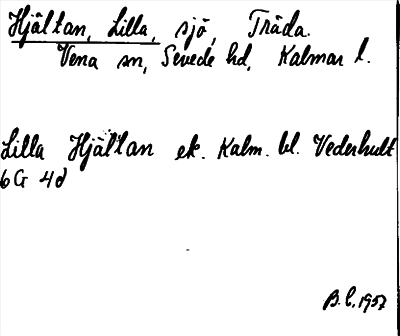 Hjältan, Lilla, sjö, Träda.
Vena sn, Sevede hd, Kalmar l.
Lilla Hjältan ek. Kalm. bl. Vederhult
6G 4d
B.L. 1957